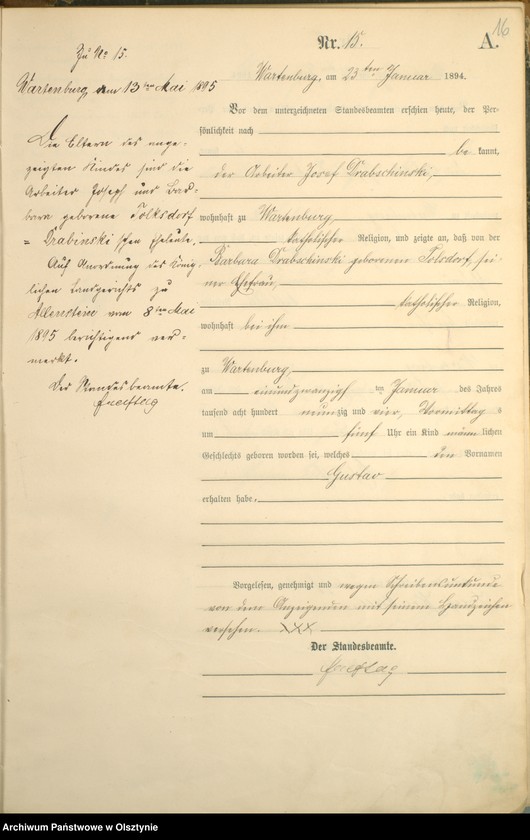 16
Nr. 15.
A.
Wartenburg, am 23ten Januar 1894.
Vor dem unterzeichneten Standesbeamten erschien heute, der Per-
sönlichkeit nach
be kannt,
der Arbeiter Josef Drabschinski,
wohnhaft zu Wartenburg,
katholischer Religion, und zeigte an, daß von der
Barbara Drabschinski geborenen Tolsdorf, sei
ner Ehefrau,
katholischer Religion,
wohnhaft bei ihm
zu Wartenburg,
am einundzwanzigsten Januar des Jahres
tausend acht hundert neunzig und vier, Vormittags
um fünf Uhr ein Kind männlichen
Geschlechts geboren worden sei, welches den Vornamen
Gustav
erhalten habe.
Vorgelesen, genehmigt und wegen Schreibensunkunde
von dem Anzeigenden mit seinem Handzeichen
versehen. XXX
Der Standesbeamte.
Freytag
Zu No 15.
Wartenburg, am 13ten Mai 1895
Die Eltern des ange-
zeigten Kindes sind die
Arbeiter Joseph und Bar-
bara geborene Tolksdorf
= Drabinski'schen Eheleute.
Auf Anordnung des König-
lichen Landgerichts zu
Allenstein vom 8ten Mai
1895 berichtigend ver-
merkt.
Der Standesbeamte.
Freytag
Archiwum Państwowe w Olsztynie